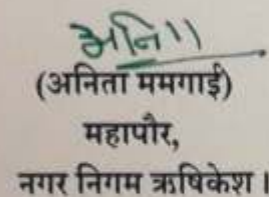 अनि
(अनिता ममगाई)
महापौर,
नगर निगम ऋषिकेश।